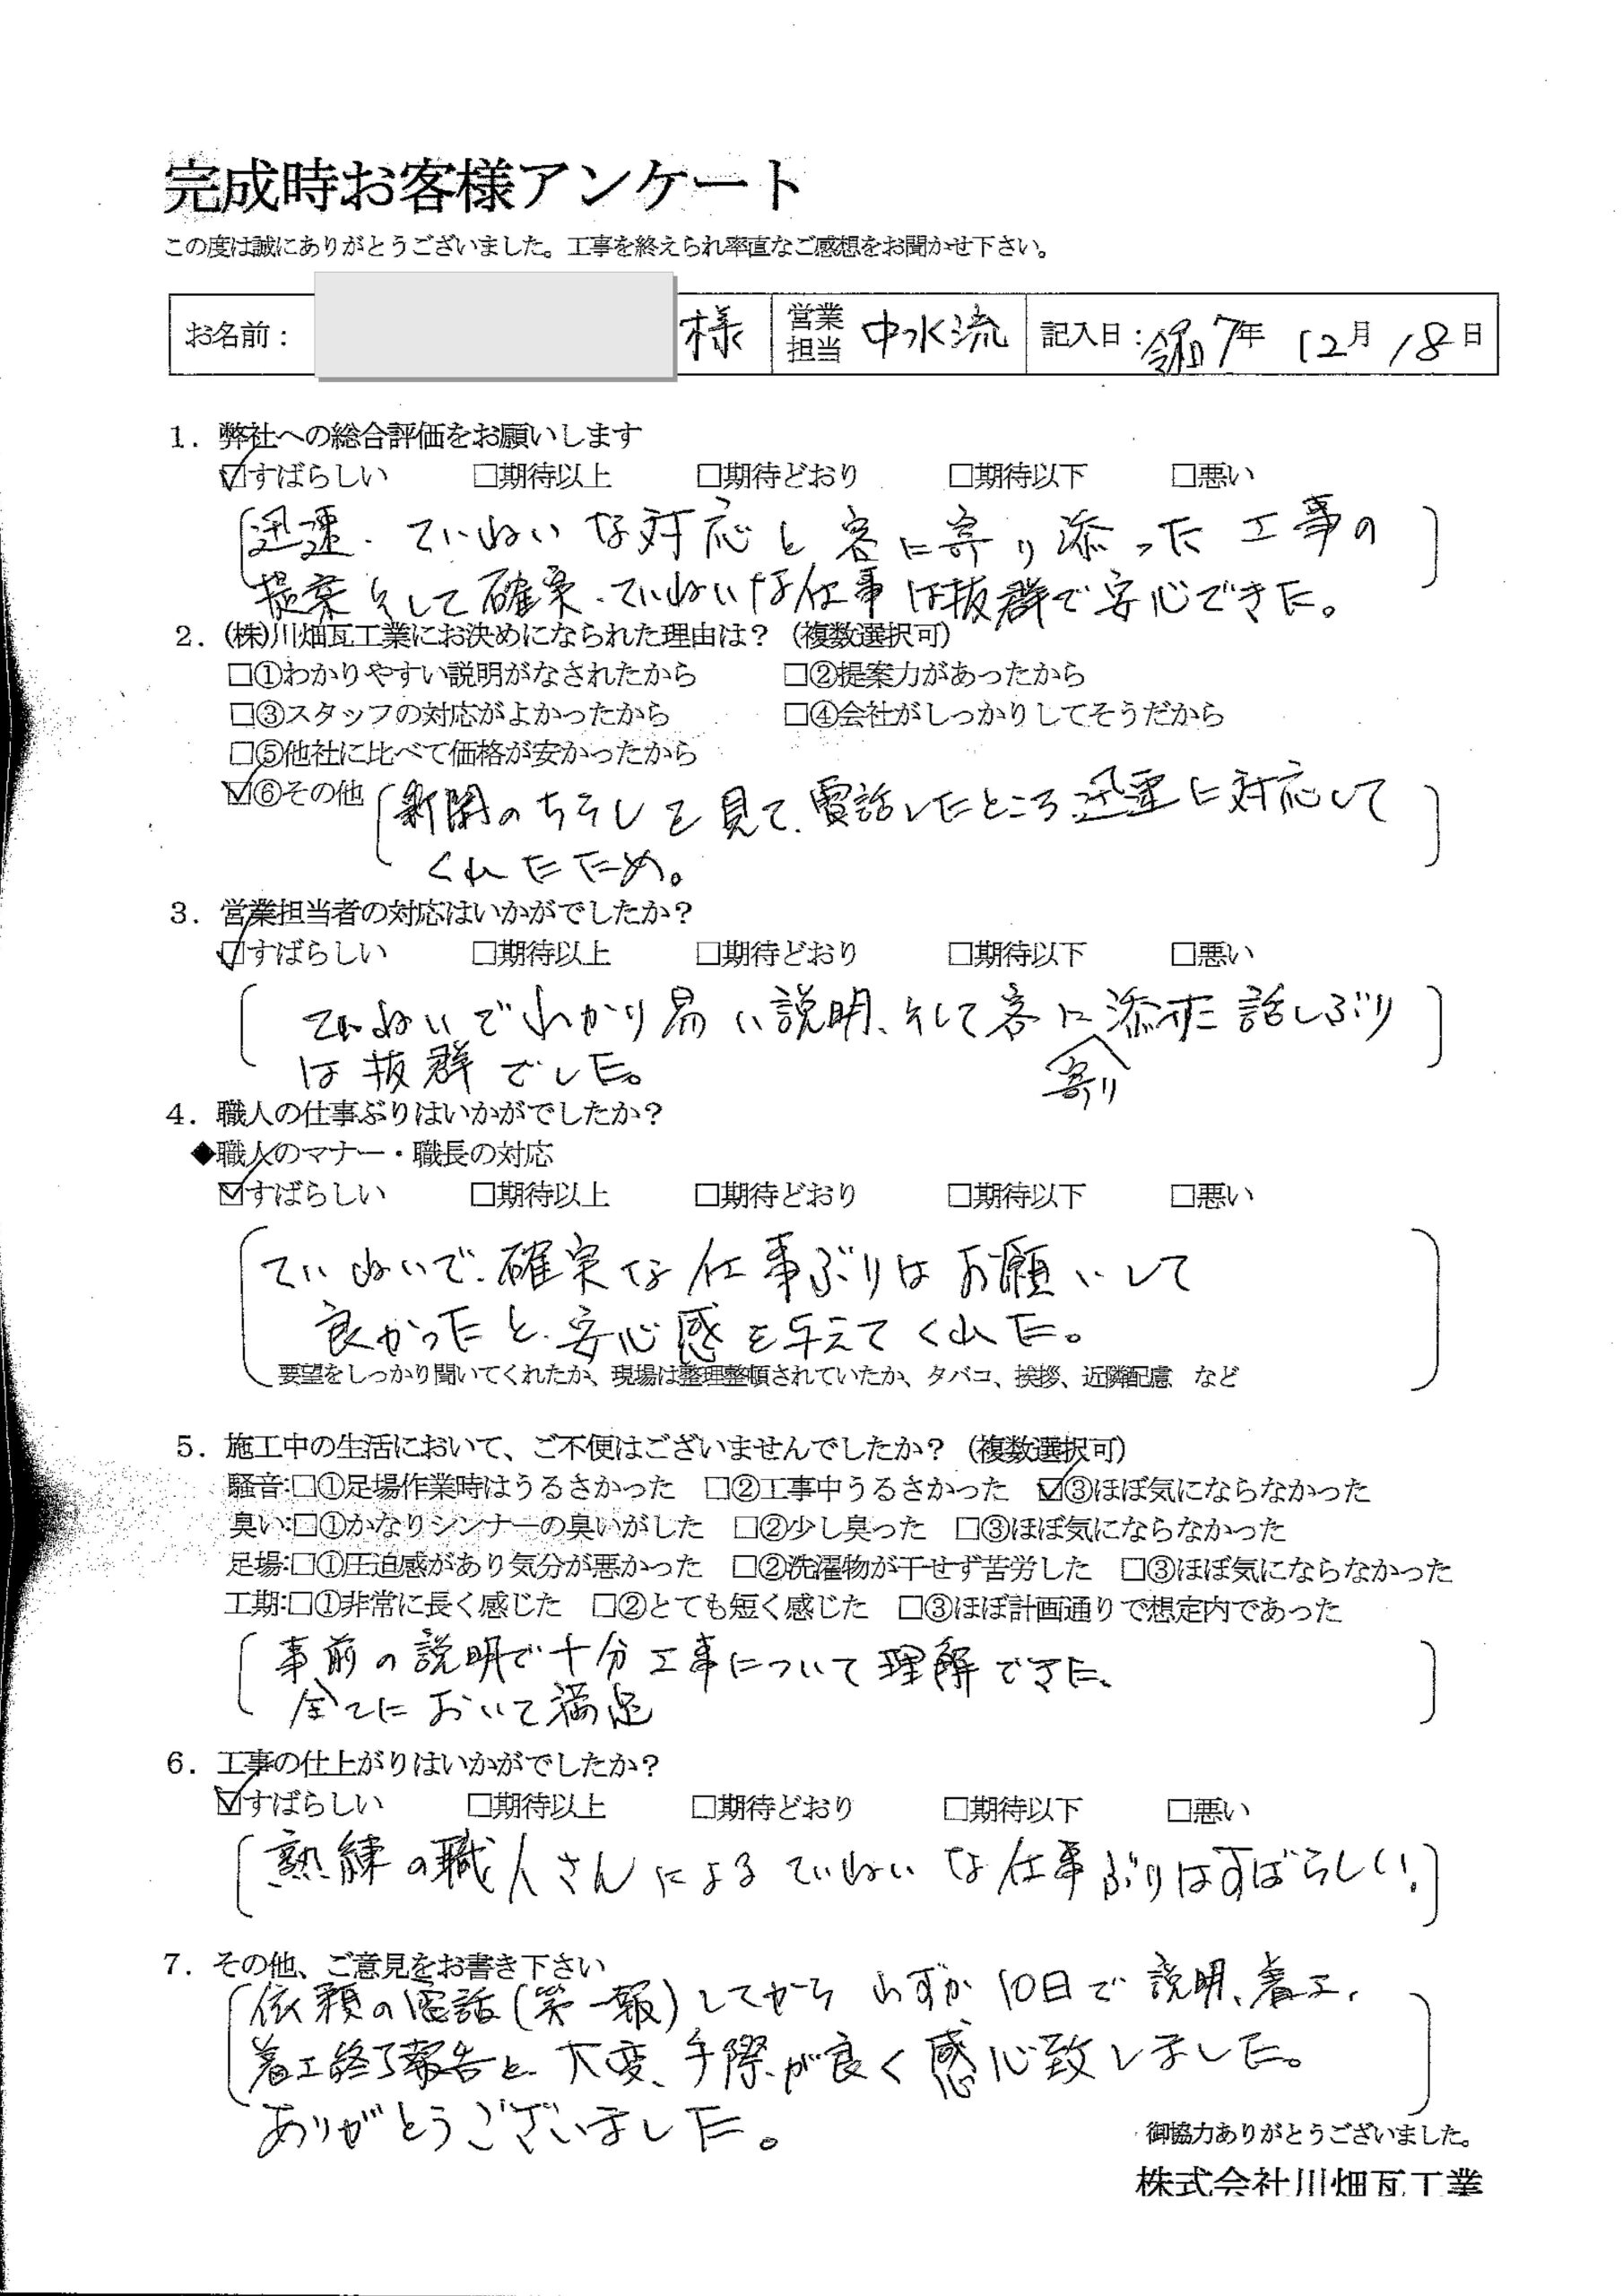 完成時お客様アンケート
この度は誠にありがとうございました。工事を終えられ率直なご感想をお聞かせ下さい。
お名前： 様 営業担当 中水流 記入日：令和7年 12月 18日
1．弊社への総合評価をお願いします
☑すばらしい □期待以上 □期待どおり □期待以下 □悪い
迅速．ていねいな対応と客に寄り添った工事の
提案そして確実．ていねいな仕事は抜群で安心できた。
2．(株)川畑瓦工業にお決めになられた理由は？（複数選択可）
□①わかりやすい説明がなされたから □②提案力があったから
□③スタッフの対応がよかったから □④会社がしっかりしてそうだから
□⑤他社に比べて価格が安かったから
☑⑥その他 新聞のちらしを見て、電話したところ、迅速に対応して
くれたため。
3．営業担当者の対応はいかがでしたか？
☑すばらしい □期待以上 □期待どおり □期待以下 □悪い
ていねいでわかり易い説明、そして客に寄り添った話しぶり
は抜群でした。
4．職人の仕事ぶりはいかがでしたか？
◆職人のマナー・職長の対応
☑すばらしい □期待以上 □期待どおり □期待以下 □悪い
ていねいで、確実な仕事ぶりはお願いして
良かったと、安心感を与えてくれた。
要望をしっかり聞いてくれたか、現場は整理整頓されていたか、タバコ、挨拶、近隣配慮 など
5．施工中の生活において、ご不便はございませんでしたか？（複数選択可）
騒音:□①足場作業時はうるさかった □②工事中うるさかった ☑③ほぼ気にならなかった
臭い:□①かなりシンナーの臭いがした □②少し臭った □③ほぼ気にならなかった
足場:□①圧迫感があり気分が悪かった □②洗濯物が干せず苦労した □③ほぼ気にならなかった
工期:□①非常に長く感じた □②とても短く感じた □③ほぼ計画通りで想定内であった
事前の説明で十分工事について理解できた、
全てにおいて満足
6．工事の仕上がりはいかがでしたか？
☑すばらしい □期待以上 □期待どおり □期待以下 □悪い
熟練の職人さんによるていねいな仕事ぶりはすばらしい！
7．その他、ご意見をお書き下さい
依頼の電話(第一報)してからわずか10日で説明、着工、
着工終了報告と、大変、手際が良く感心致しました。
ありがとうございました。
御協力ありがとうございました。
株式会社川畑瓦工業